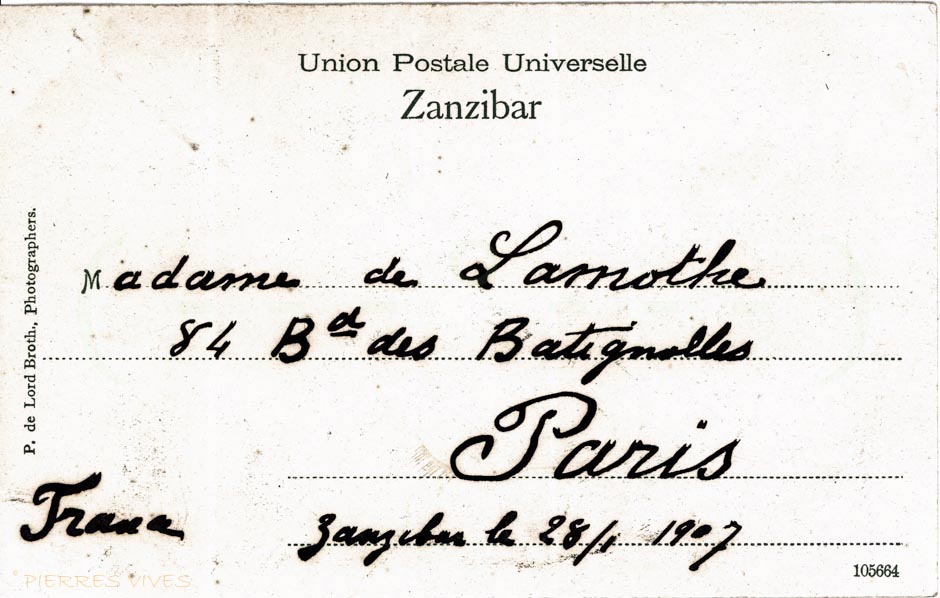 Union Postale Universelle
Zanzibar
P. de Lord Broth., Photographers.
Madame de Lamothe
84 Bd des Batignolles
Paris
France
Zanzibar le 28/1 1907
105664
PIERRES VIVES